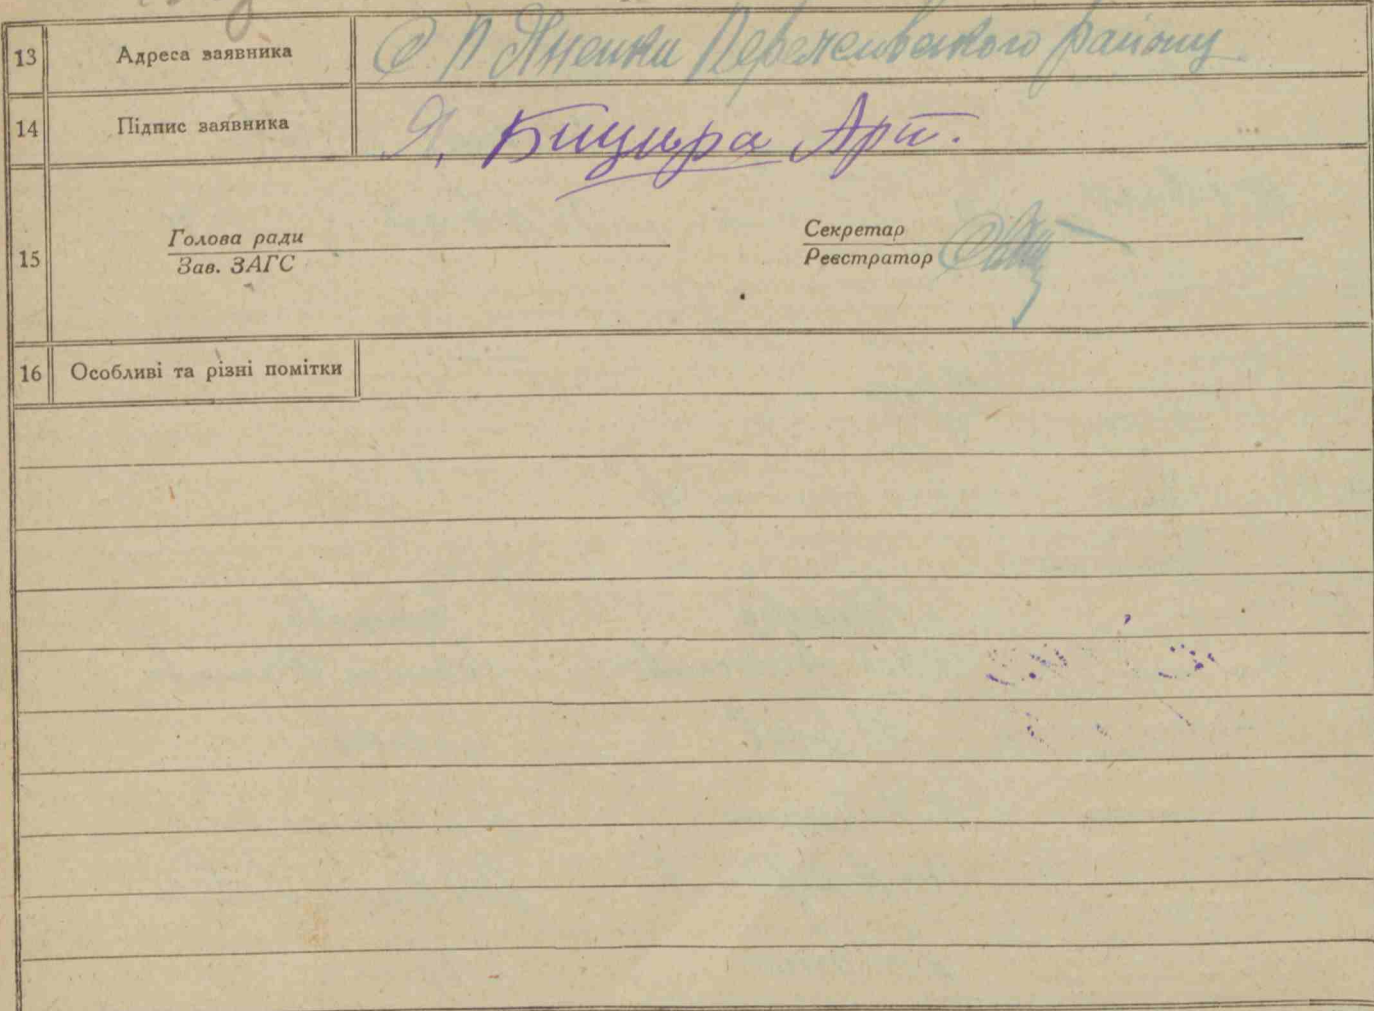 13 Адреса заявника С. П Яненки Переяславського району
14 Підпис заявника Я, Бицюра Арт.
15 Голова ради
Зав. ЗАГС
Секретар
Реєстратор
16 Особливі та різні помітки